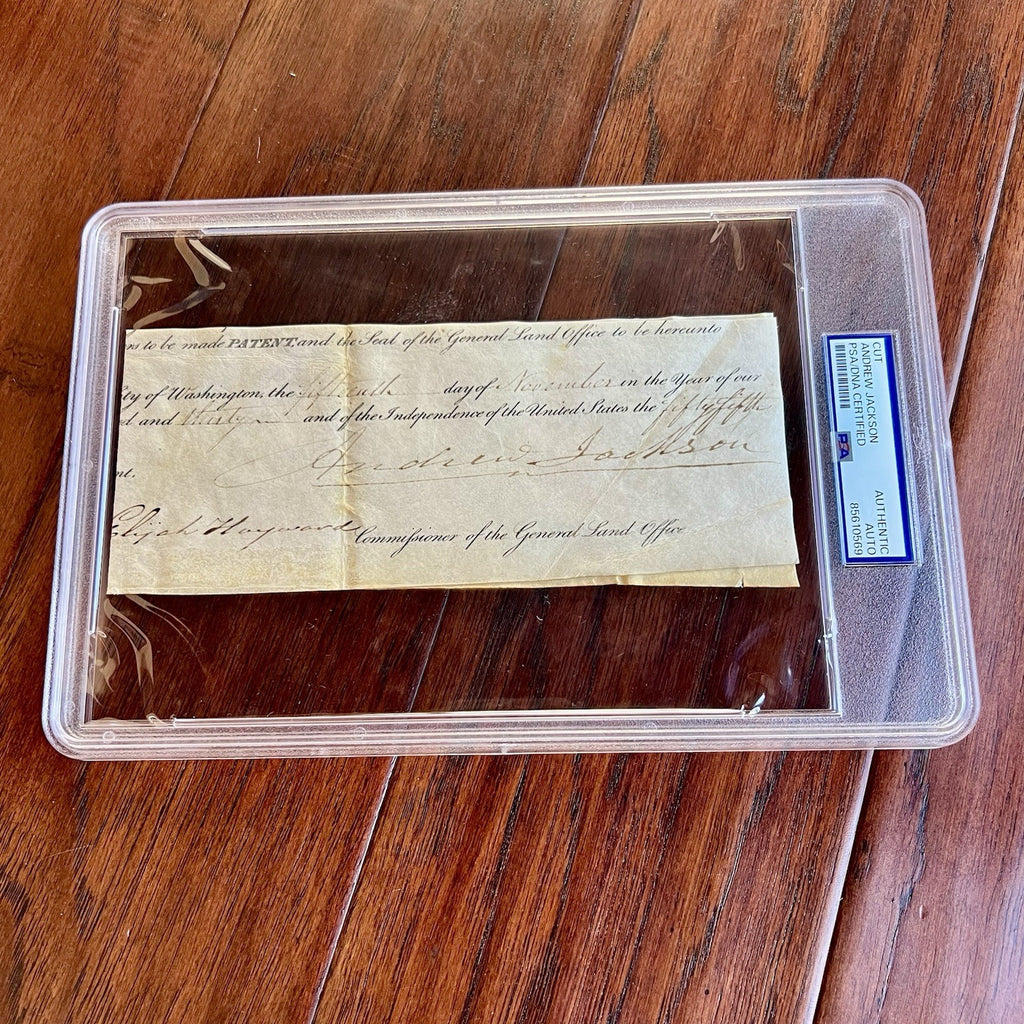 ns to be made PATENT, and the Seal of the General Land Office to be hereunto
City of Washington, the fifteenth day of November in the Year of our
d and thirty and of the Independence of the United States the fiftyfifth
Andrew Jackson
nt.
Elijah Hayward Commissioner of the General Land Office
CUT
ANDREW JACKSON
PSA/DNA CERTIFIED
PSA
AUTHENTIC
AUTO
85610569